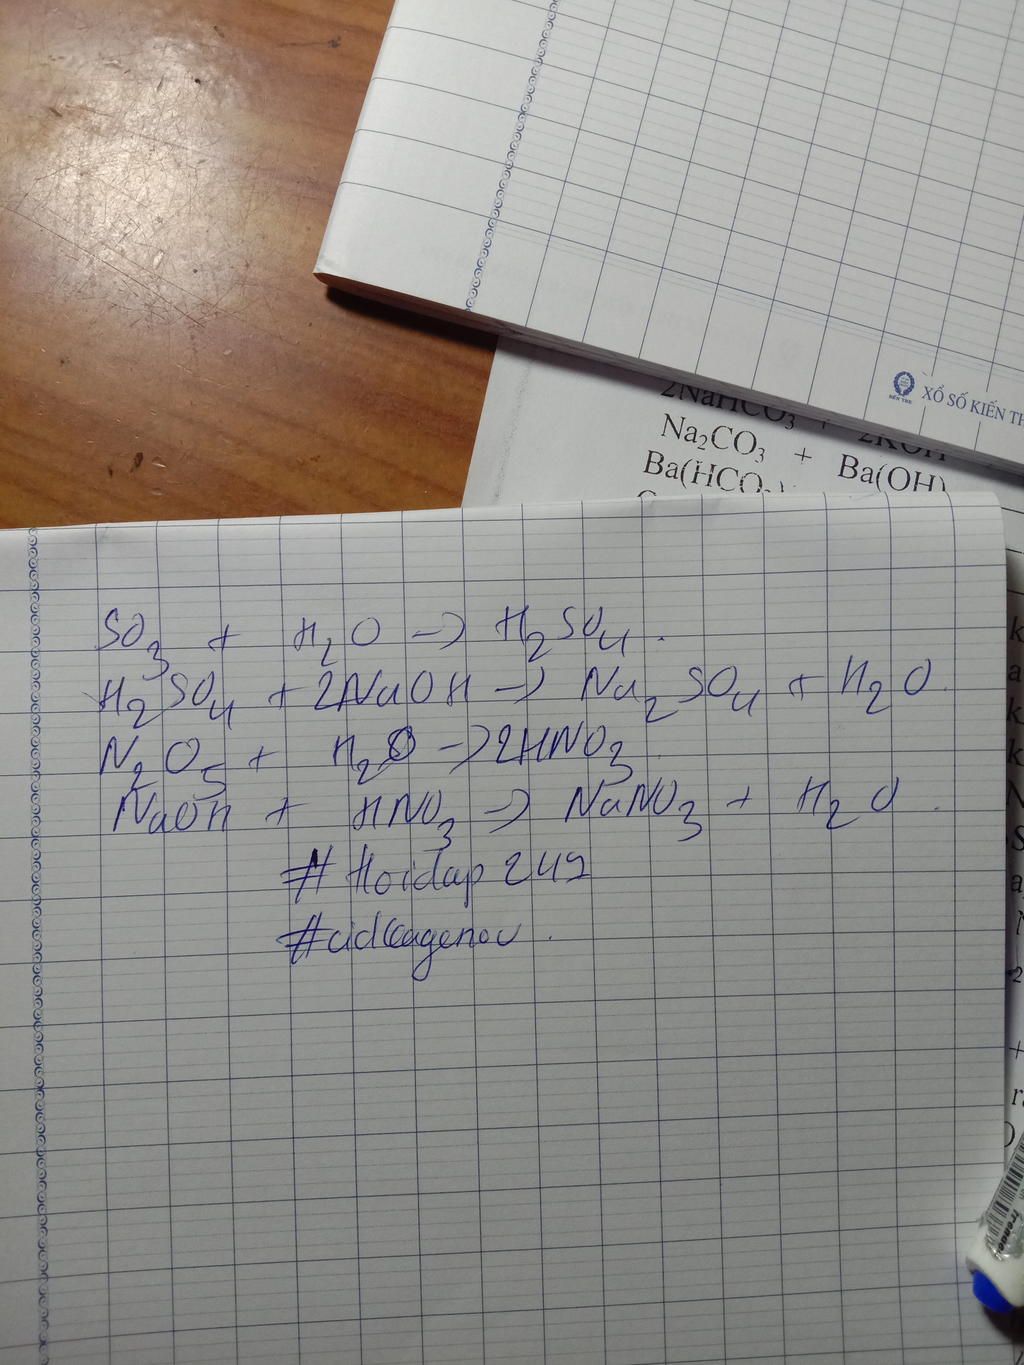 XỔ SỐ KIẾN TH
BẾN TRE
2NaHCO₃ + 2KOH
Na₂CO₃ + Ba(OH)
Ba(HCO₃)
SO₃ + H₂O → H₂SO₄.
H₂SO₄ + 2NaOH → Na₂SO₄ + H₂O.
N₂O₅ + H₂O → 2HNO₃.
NaOH + HNO₃ → NaNO₃ + H₂O.
# Hoidap 249